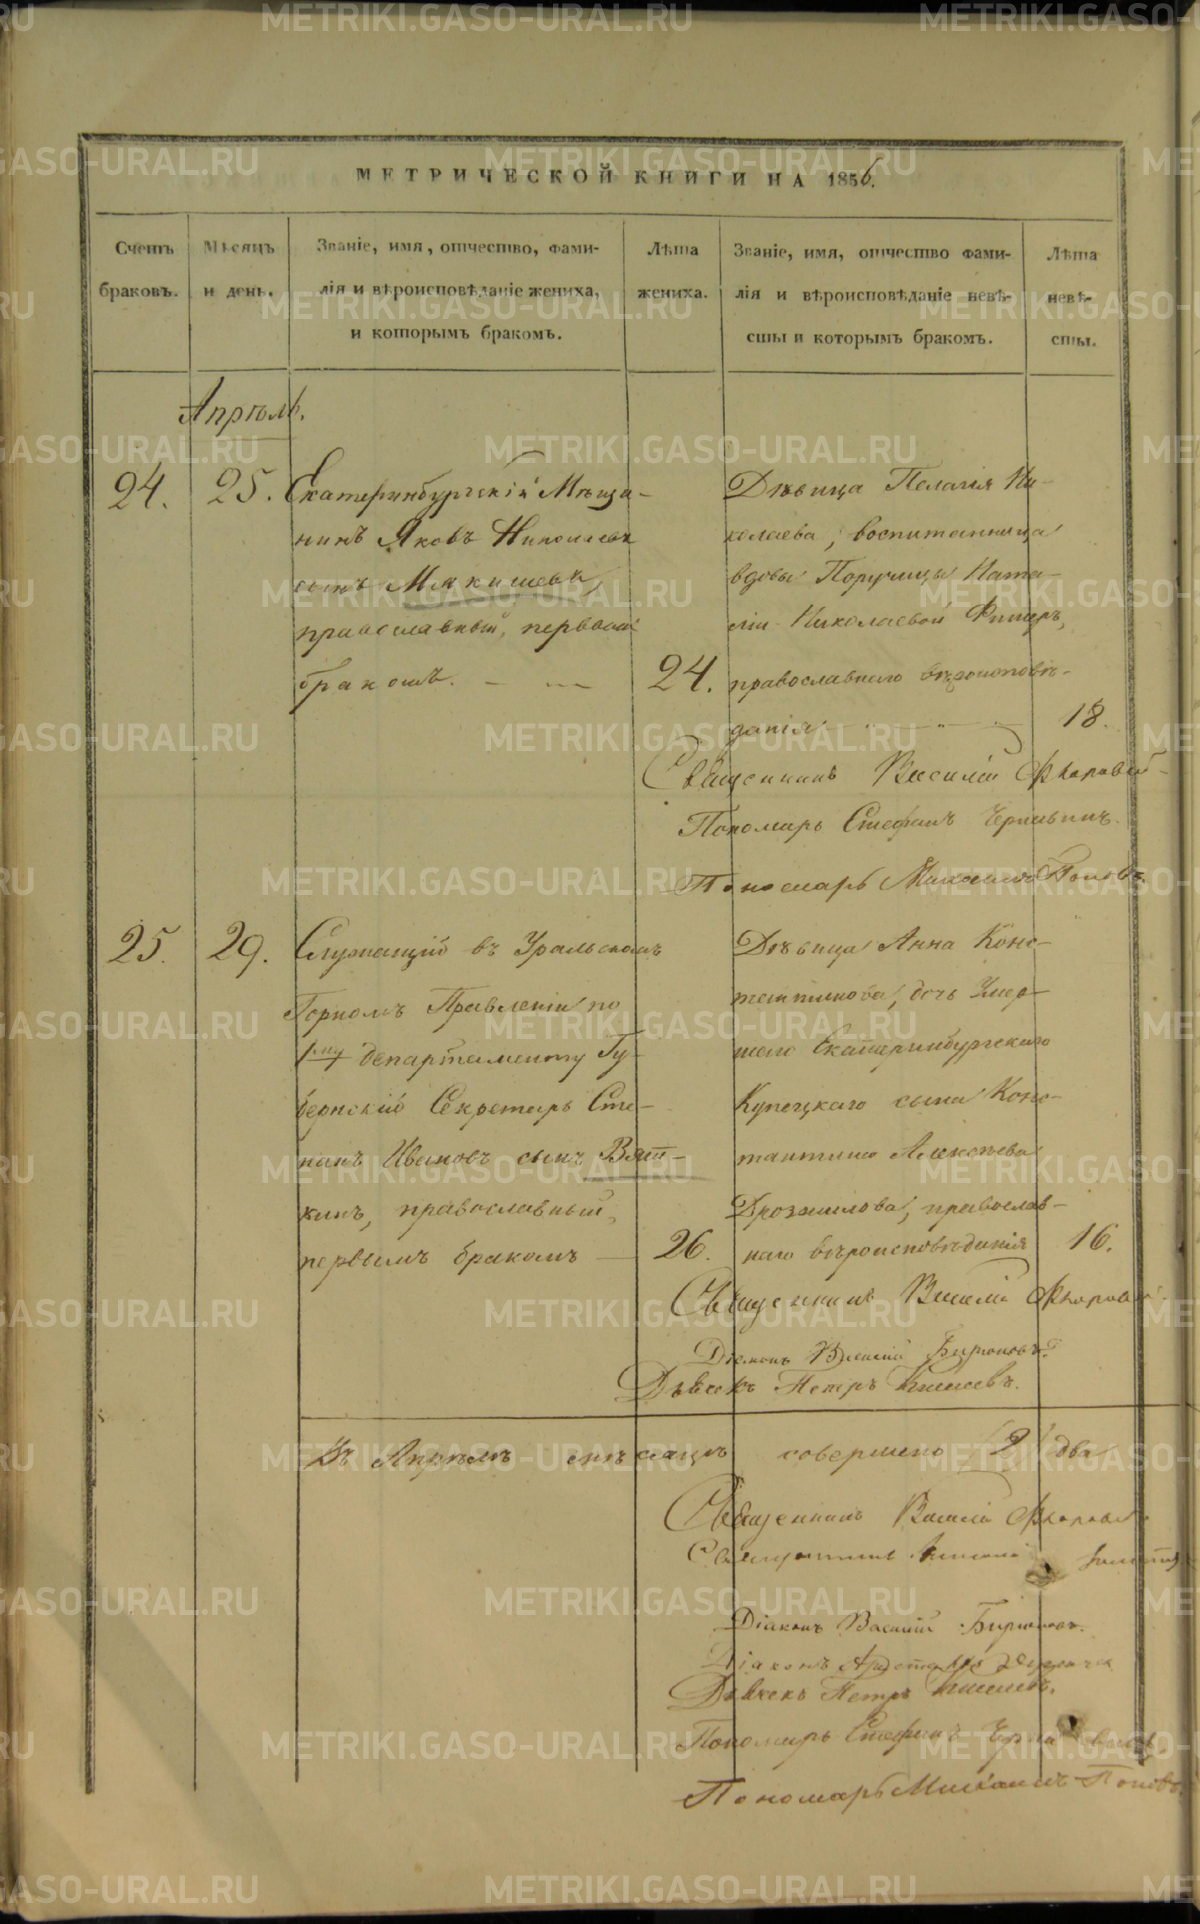 МЕТРИЧЕСКОЙ КНИГИ НА 1856.
Счетъ браковъ.
Мѣсяцъ и день.
Званіе, имя, отчество, фами-
лія и вѣроисповѣданіе жениха,
и которымъ бракомъ.
Лѣта
жениха.
Званіе, имя, отчество фами-
лія и вѣроисповѣданіе невѣ-
сты и которымъ бракомъ.
Лѣта
невѣ-
сты.
Апрѣль.
24.
25.
Екатеринбургскій Мѣща-
нинъ Яковъ Николаевъ
сынъ Мякишевъ,
православный, первымъ
бракомъ.
24.
Дѣвица Пелагія Ни-
колаева, воспитанница
вдовы Поручицы Ната-
ліи Николаевой
православнаго вѣроисповѣ-
данія
18.
Священникъ Василій
Пономарь Стефанъ Чернавинъ.
Пономарь Михаилъ Поповъ.
25.
29.
Служащій въ Уральскомъ
Горномъ Правленіи по
1му департаменту Гу-
бернскій Секретарь Сте-
панъ Ивановъ сынъ Вят-
кинъ, православный,
первымъ бракомъ
26.
Дѣвица Анна Конс-
тантинова, дочь Умер-
шаго Екатеринбургскаго
Купеческаго сына Конс-
тантина Алексѣева
Дрозжилова, православ-
наго вѣроисповѣданія
16.
Священникъ Василій
Діаконъ Василій Бирюковъ.
Дьячекъ Петръ Киселевъ.
Въ Апрѣлѣ мѣсяцѣ совершено 2 два
Священникъ Василій
Священникъ
Діаконъ Василій Бирюковъ.
Діаконъ
Дьячекъ Петръ Киселевъ.
Пономарь Стефанъ Чернавинъ.
Пономарь Михаилъ Поповъ.
METRIKI.GASO-URAL.RU